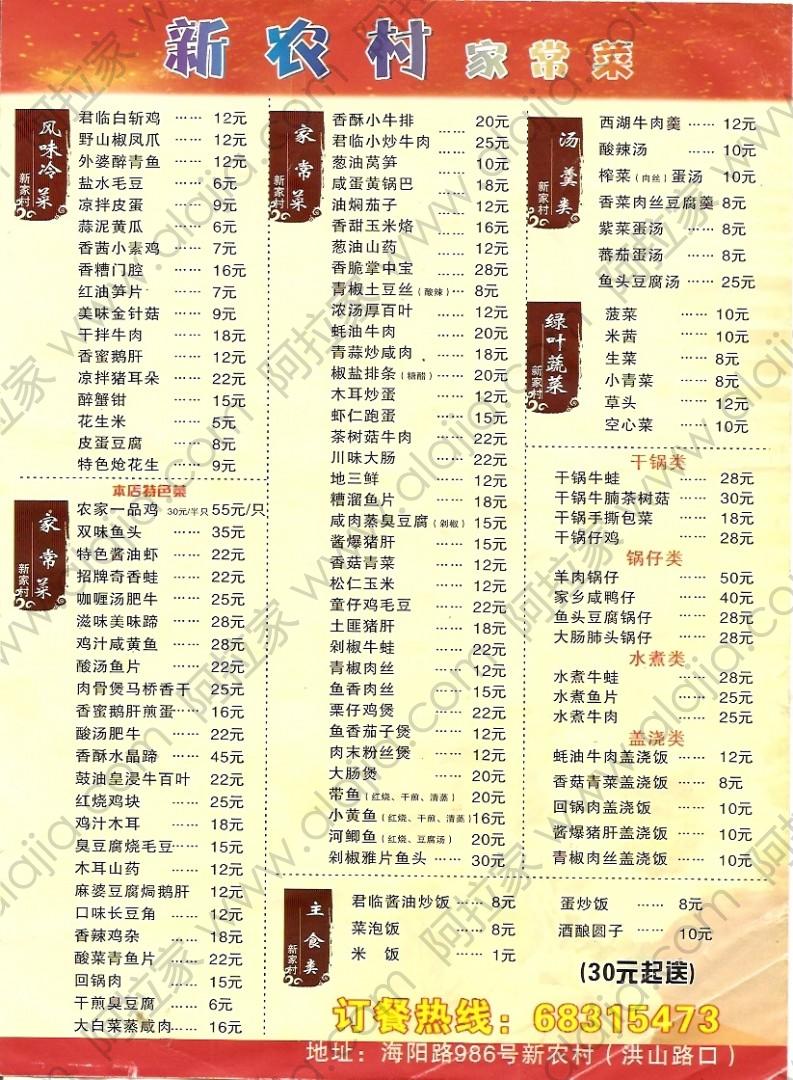 新农村 家常菜
风味冷菜
新家村
君临白斩鸡 …… 12元
野山椒凤爪 …… 12元
外婆醉青鱼 …… 12元
盐水毛豆 …… 6元
凉拌皮蛋 …… 9元
蒜泥黄瓜 …… 6元
香茜小素鸡 …… 7元
香糟门腔 …… 16元
红油笋片 …… 7元
美味金针菇 …… 9元
干拌牛肉 …… 18元
香蜜鹅肝 …… 12元
凉拌猪耳朵 …… 22元
醉蟹钳 …… 15元
花生米 …… 5元
皮蛋豆腐 …… 8元
特色炝花生 …… 9元
本店特色菜
家常菜
新家村
农家一品鸡 30元/半只 55元/只
双味鱼头 …… 35元
特色酱油虾 …… 22元
招牌奇香蛙 …… 22元
咖喱汤肥牛 …… 25元
滋味美味蹄 …… 28元
鸡汁咸黄鱼 …… 28元
酸汤鱼片 …… 22元
肉骨煲马桥香干 25元
香蜜鹅肝煎蛋 …… 16元
酸汤肥牛 …… 22元
香酥水晶蹄 …… 45元
鼓油皇浸牛百叶 22元
红烧鸡块 …… 25元
鸡汁木耳 …… 18元
臭豆腐烧毛豆 …… 15元
木耳山药 …… 12元
麻婆豆腐焗鹅肝 12元
口味长豆角 …… 12元
香辣鸡杂 …… 18元
酸菜青鱼片 …… 22元
回锅肉 …… 15元
干煎臭豆腐 …… 6元
大白菜蒸咸肉 …… 16元
家常菜
新家村
香酥小牛排 …… 20元
君临小炒牛肉 …… 25元
葱油莴笋 …… 10元
咸蛋黄锅巴 …… 18元
油焖茄子 …… 12元
香甜玉米烙 …… 16元
葱油山药 …… 12元
香脆掌中宝 …… 28元
青椒土豆丝（酸辣）…… 8元
浓汤厚百叶 …… 12元
蚝油牛肉 …… 20元
青蒜炒咸肉 …… 18元
椒盐排条（糖醋）…… 20元
木耳炒蛋 …… 12元
虾仁跑蛋 …… 15元
茶树菇牛肉 …… 22元
川味大肠 …… 22元
地三鲜 …… 12元
糟溜鱼片 …… 18元
咸肉蒸臭豆腐（剁椒）15元
酱爆猪肝 …… 15元
香菇青菜 …… 12元
松仁玉米 …… 12元
童仔鸡毛豆 …… 22元
土匪猪肝 …… 18元
剁椒牛蛙 …… 22元
青椒肉丝 …… 12元
鱼香肉丝 …… 15元
栗仔鸡煲 …… 22元
鱼香茄子煲 …… 12元
肉末粉丝煲 …… 12元
大肠煲 …… 20元
带鱼（红烧、干煎、清蒸） 20元
小黄鱼（红烧、干煎、清蒸）16元
河鲫鱼（红烧、豆腐汤） 20元
剁椒雅片鱼头 …… 30元
汤羹类
新家村
西湖牛肉羹 …… 12元
酸辣汤 …… 10元
榨菜（肉丝）蛋汤 10元
香菜肉丝豆腐羹 8元
紫菜蛋汤 …… 8元
蕃茄蛋汤 …… 8元
鱼头豆腐汤 …… 25元
绿叶蔬菜
新家村
菠菜 …… 10元
米茜 …… 10元
生菜 …… 8元
小青菜 …… 8元
草头 …… 12元
空心菜 …… 10元
干锅类
干锅牛蛙 …… 28元
干锅牛腩茶树菇 …… 30元
干锅手撕包菜 …… 18元
干锅仔鸡 …… 28元
锅仔类
羊肉锅仔 …… 50元
家乡咸鸭仔 …… 40元
鱼头豆腐锅仔 …… 28元
大肠肺头锅仔 …… 28元
水煮类
水煮牛蛙 …… 28元
水煮鱼片 …… 25元
水煮牛肉 …… 25元
盖浇类
蚝油牛肉盖浇饭 …… 12元
香菇青菜盖浇饭 …… 8元
回锅肉盖浇饭 …… 10元
酱爆猪肝盖浇饭 …… 10元
青椒肉丝盖浇饭 …… 10元
主食类
新家村
君临酱油炒饭 …… 8元
菜泡饭 …… 8元
米 饭 …… 1元
蛋炒饭 …… 8元
酒酿圆子 …… 10元
(30元起送)
订餐热线：68315473
地址：海阳路986号新农村（洪山路口）
阿拉家 www.alajia.com